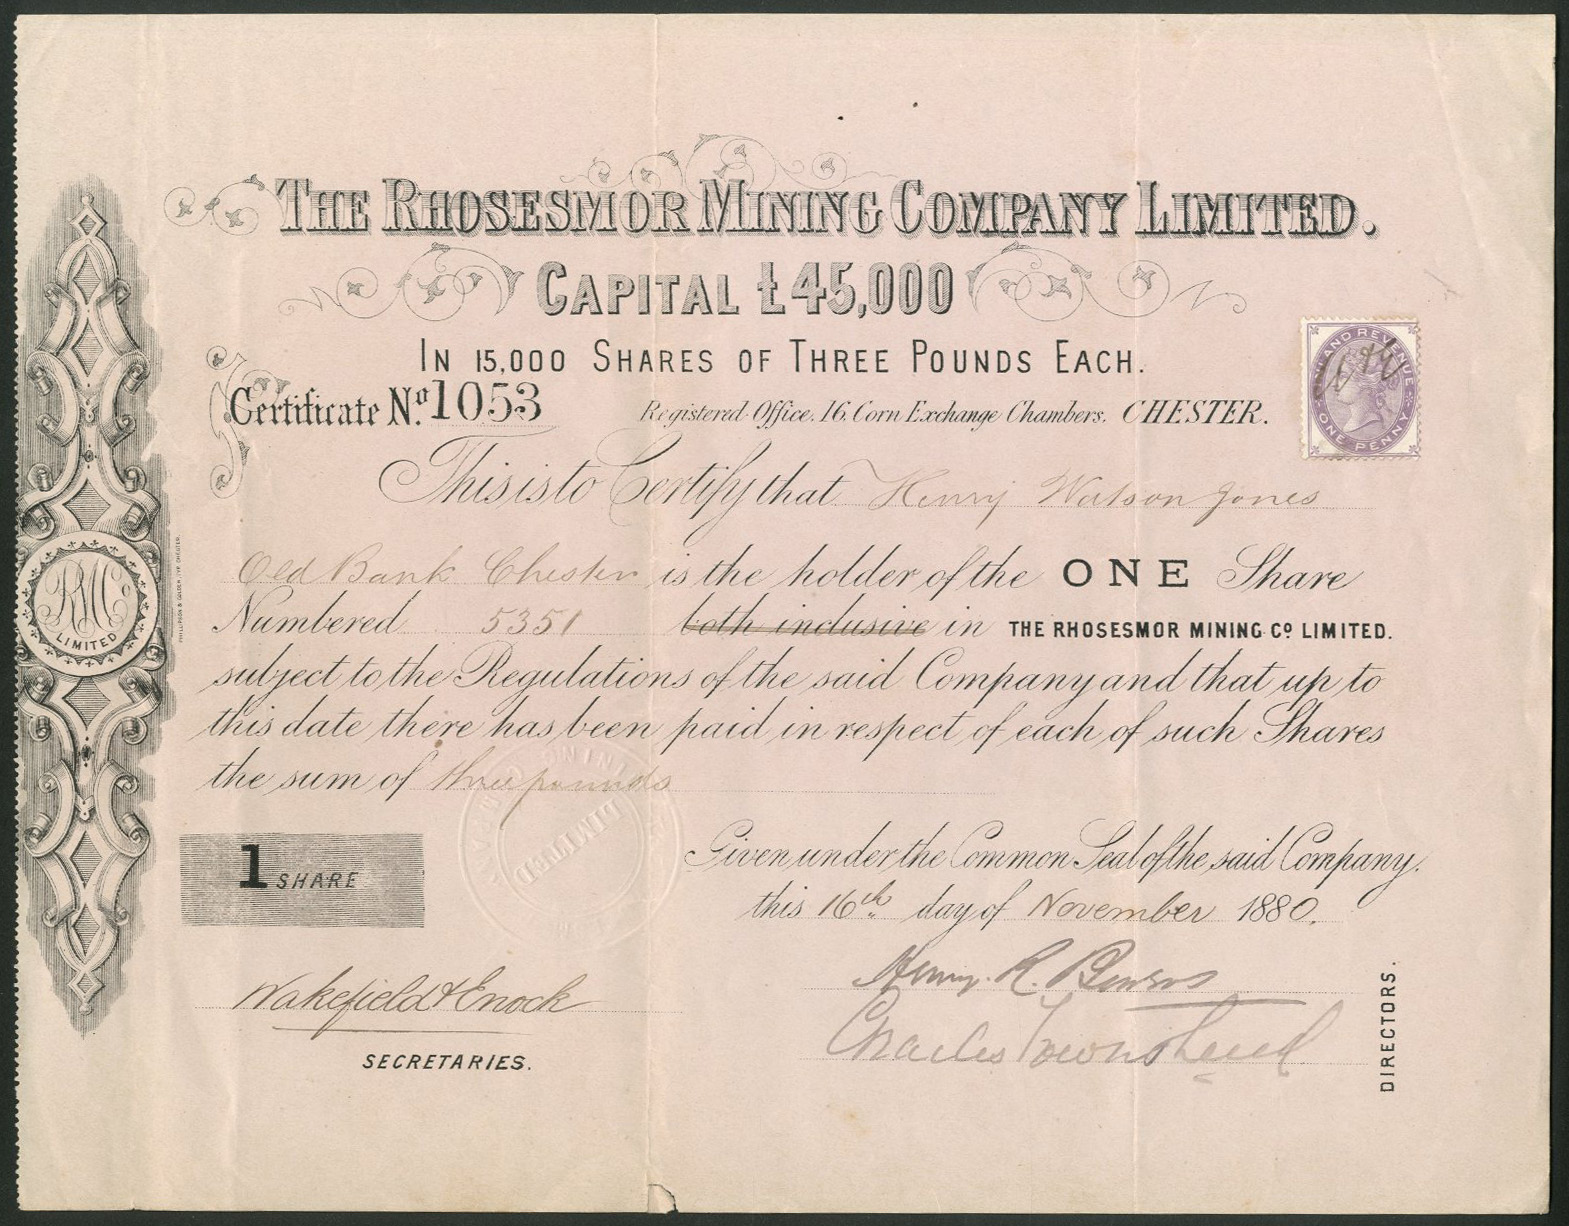 THE RHOSESMOR MINING COMPANY LIMITED.
CAPITAL £45,000
IN 15,000 SHARES OF THREE POUNDS EACH.
Certificate No. 1053
Registered Office. 16. Corn Exchange Chambers. CHESTER.
INLAND REVENUE
ONE PENNY
This is to Certify that Henry Watson Jones
Old Bank Chester is the holder of the ONE Share
Numbered 5351 both inclusive in THE RHOSESMOR MINING Co LIMITED.
subject to the Regulations of the said Company and that up to
this date there has been paid in respect of each of such Shares
the sum of three pounds
RMCo
LIMITED
LIMITED
1 SHARE
Given under the Common Seal of the said Company.
this 16th day of November 1880.
Wakefield & Enock
SECRETARIES.
Henry R. Bowers
Charles Townshend
DIRECTORS.